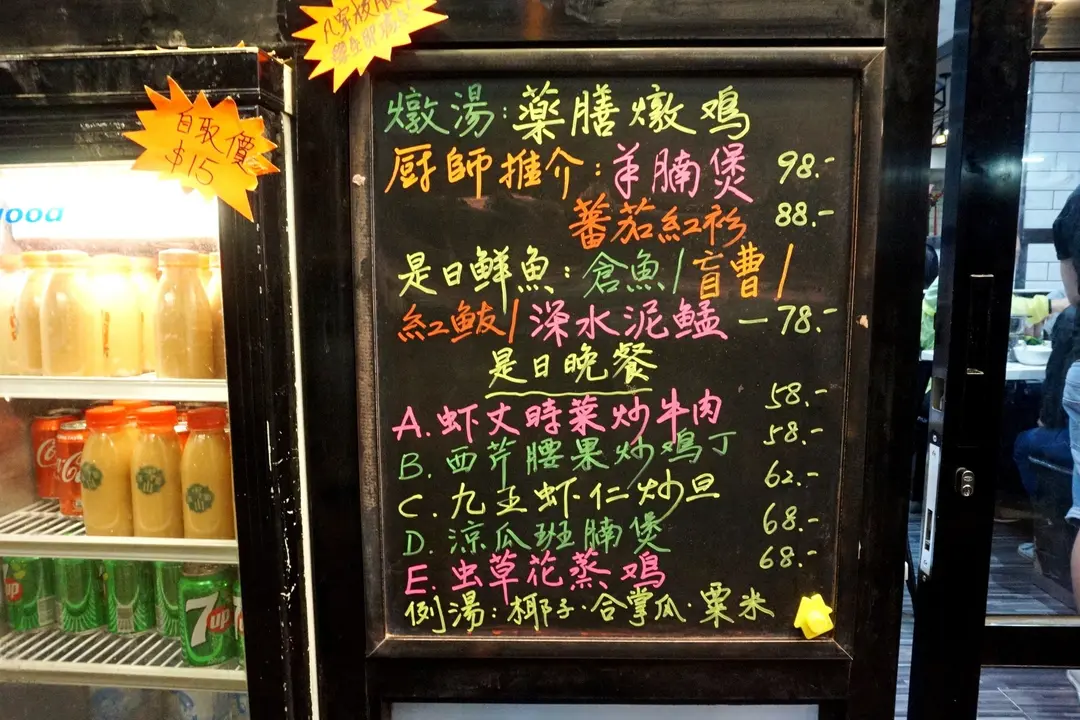 自取價
$15
燉湯:藥膳燉鸡
厨師推介:羊腩煲 98.-
蕃茄紅衫 88.-
是日鮮魚:倉魚/盲曹/
紅鮁/深水泥鯭 — 78.-
是日晚餐
A. 虾丈時菜炒牛肉 58.-
B. 西芹腰果炒鸡丁 58.-
C. 九王虾仁炒旦 62.-
D. 涼瓜班腩煲 68.-
E. 虫草花蒸鸡 68.-
例湯:椰子·合掌瓜·粟米
7up